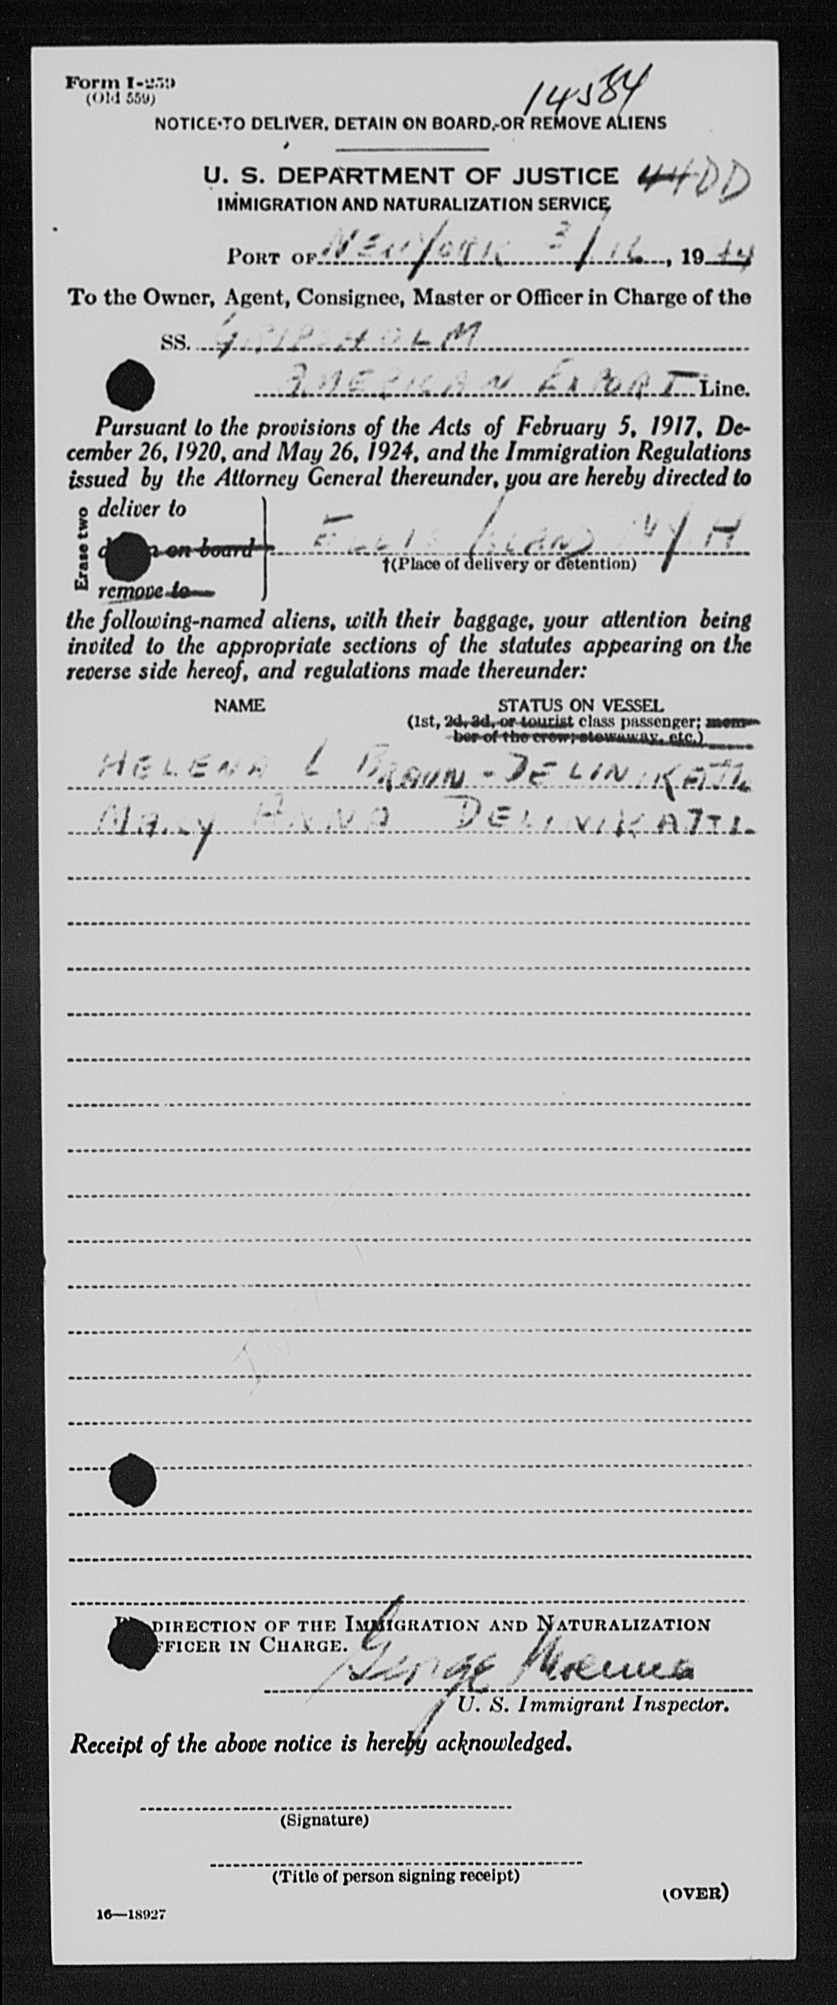 Form I-259
(Old 559)
14584
NOTICE TO DELIVER, DETAIN ON BOARD, OR REMOVE ALIENS
U. S. DEPARTMENT OF JUSTICE
IMMIGRATION AND NATURALIZATION SERVICE
PORT OF NEW YORK 3/16, 1944
To the Owner, Agent, Consignee, Master or Officer in Charge of the
SS. GRIPSHOLM
AMERICAN EXPORT Line.
Pursuant to the provisions of the Acts of February 5, 1917, De-
cember 26, 1920, and May 26, 1924, and the Immigration Regulations
issued by the Attorney General thereunder, you are hereby directed to
Erase two
deliver to
on board ELLIS ISLAND NYH
†(Place of delivery or detention)
remove to
the following-named aliens, with their baggage, your attention being
invited to the appropriate sections of the statutes appearing on the
reverse side hereof, and regulations made thereunder:
NAME STATUS ON VESSEL
(1st, 2d, 3d, or tourist class passenger; mem-
ber of the crew; stowaway, etc.)
HELENA L BRAUN-DELINIKATTI
MARY ANNA DELINIKATTI
DIRECTION OF THE IMMIGRATION AND NATURALIZATION
OFFICER IN CHARGE.
George
U. S. Immigrant Inspector.
Receipt of the above notice is hereby acknowledged.
(Signature)
(Title of person signing receipt)
(OVER)
16—18927